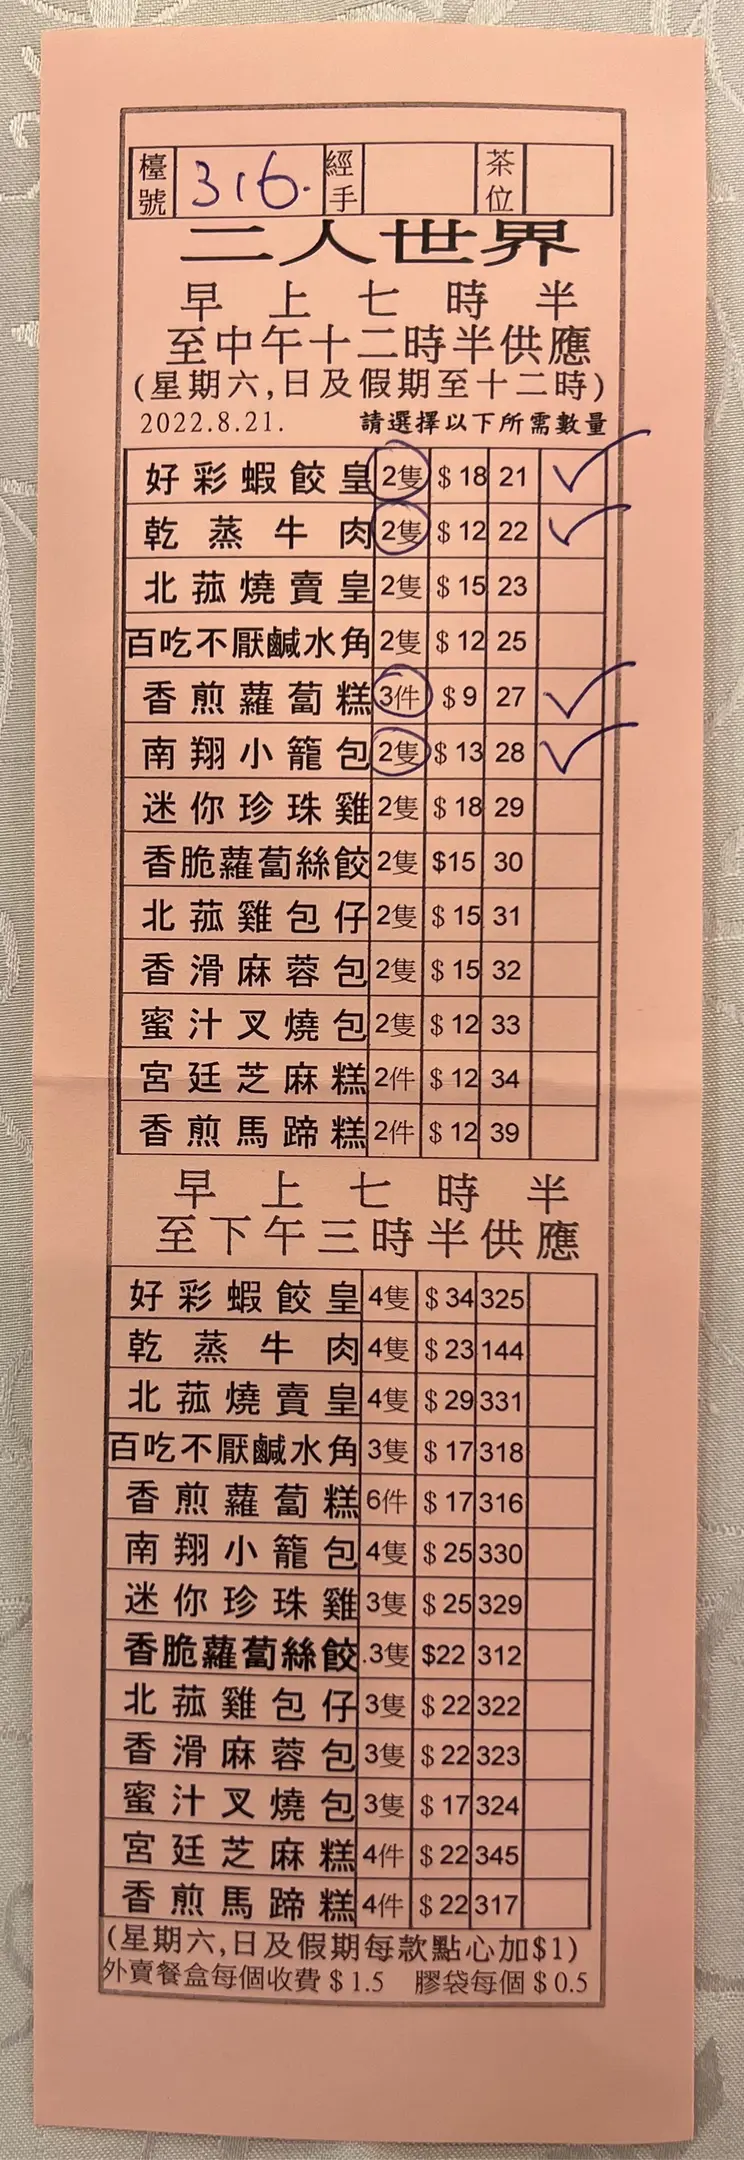 檯號 316. 經手 茶位
二人世界
早上七時半
至中午十二時半供應
(星期六,日及假期至十二時)
2022.8.21. 請選擇以下所需數量
好彩蝦餃皇 2隻 $18 21 ✓
乾蒸牛肉 2隻 $12 22 ✓
北菰燒賣皇 2隻 $15 23
百吃不厭鹹水角 2隻 $12 25
香煎蘿蔔糕 3件 $9 27 ✓
南翔小籠包 2隻 $13 28 ✓
迷你珍珠雞 2隻 $18 29
香脆蘿蔔絲餃 2隻 $15 30
北菰雞包仔 2隻 $15 31
香滑麻蓉包 2隻 $15 32
蜜汁叉燒包 2隻 $12 33
宮廷芝麻糕 2件 $12 34
香煎馬蹄糕 2件 $12 39
早上七時半
至下午三時半供應
好彩蝦餃皇 4隻 $34 325
乾蒸牛肉 4隻 $23 144
北菰燒賣皇 4隻 $29 331
百吃不厭鹹水角 3隻 $17 318
香煎蘿蔔糕 6件 $17 316
南翔小籠包 4隻 $25 330
迷你珍珠雞 3隻 $25 329
香脆蘿蔔絲餃 .3隻 $22 312
北菰雞包仔 3隻 $22 322
香滑麻蓉包 3隻 $22 323
蜜汁叉燒包 3隻 $17 324
宮廷芝麻糕 4件 $22 345
香煎馬蹄糕 4件 $22 317
(星期六,日及假期每款點心加$1)
外賣餐盒每個收費$1.5 膠袋每個$0.5